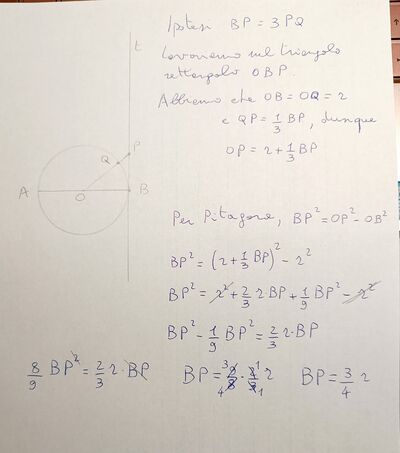 Ipotesi BP = 3PQ
t
Lavoriamo nel triangolo
rettangolo OBP.
Abbiamo che OB = OQ = r
e QP = 1/3 BP, dunque
OP = r + 1/3 BP
P
Q
A
O
B
Per Pitagora, BP² = OP² - OB²
BP² = (r + 1/3 BP)² - r²
BP² = r² + 2/3 r·BP + 1/9 BP² - r²
BP² - 1/9 BP² = 2/3 r·BP
8/9 BP² = 2/3 r·BP
BP = 9/8 · 2/3 r
BP = 3/4 r